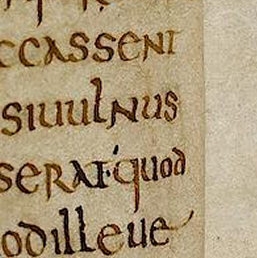 ccassent
siuulnus
serat·quod
odilleue